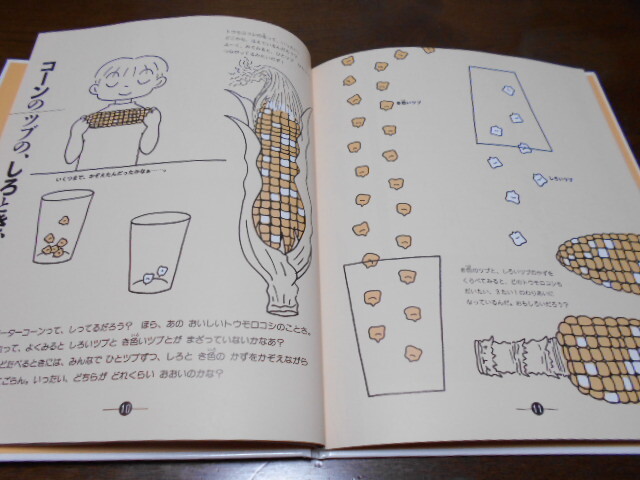 コーンのツブの、しろときい
いくつまで、かぞえたんだったかなぁ……。
ーターコーンって、しってるだろう？ ほら、あの おいしいトウモロコシのことさ。
って、よくみると しろいツブと き色いツブとが まざっていないかなあ？
どたべるときには、みんなで ひとツブずつ、しろと き色の かずをかぞえながら
ごらん。いったい、どちらが どれくらい おおいのかな？
10
き色いツブ
しろいツブ
き色いツブと、しろいツブのかずを
くらべてみると、どのトウモロコシも
だいたい、3たい1のわりあいに
なっているんだ。おもしろいだろう？
11